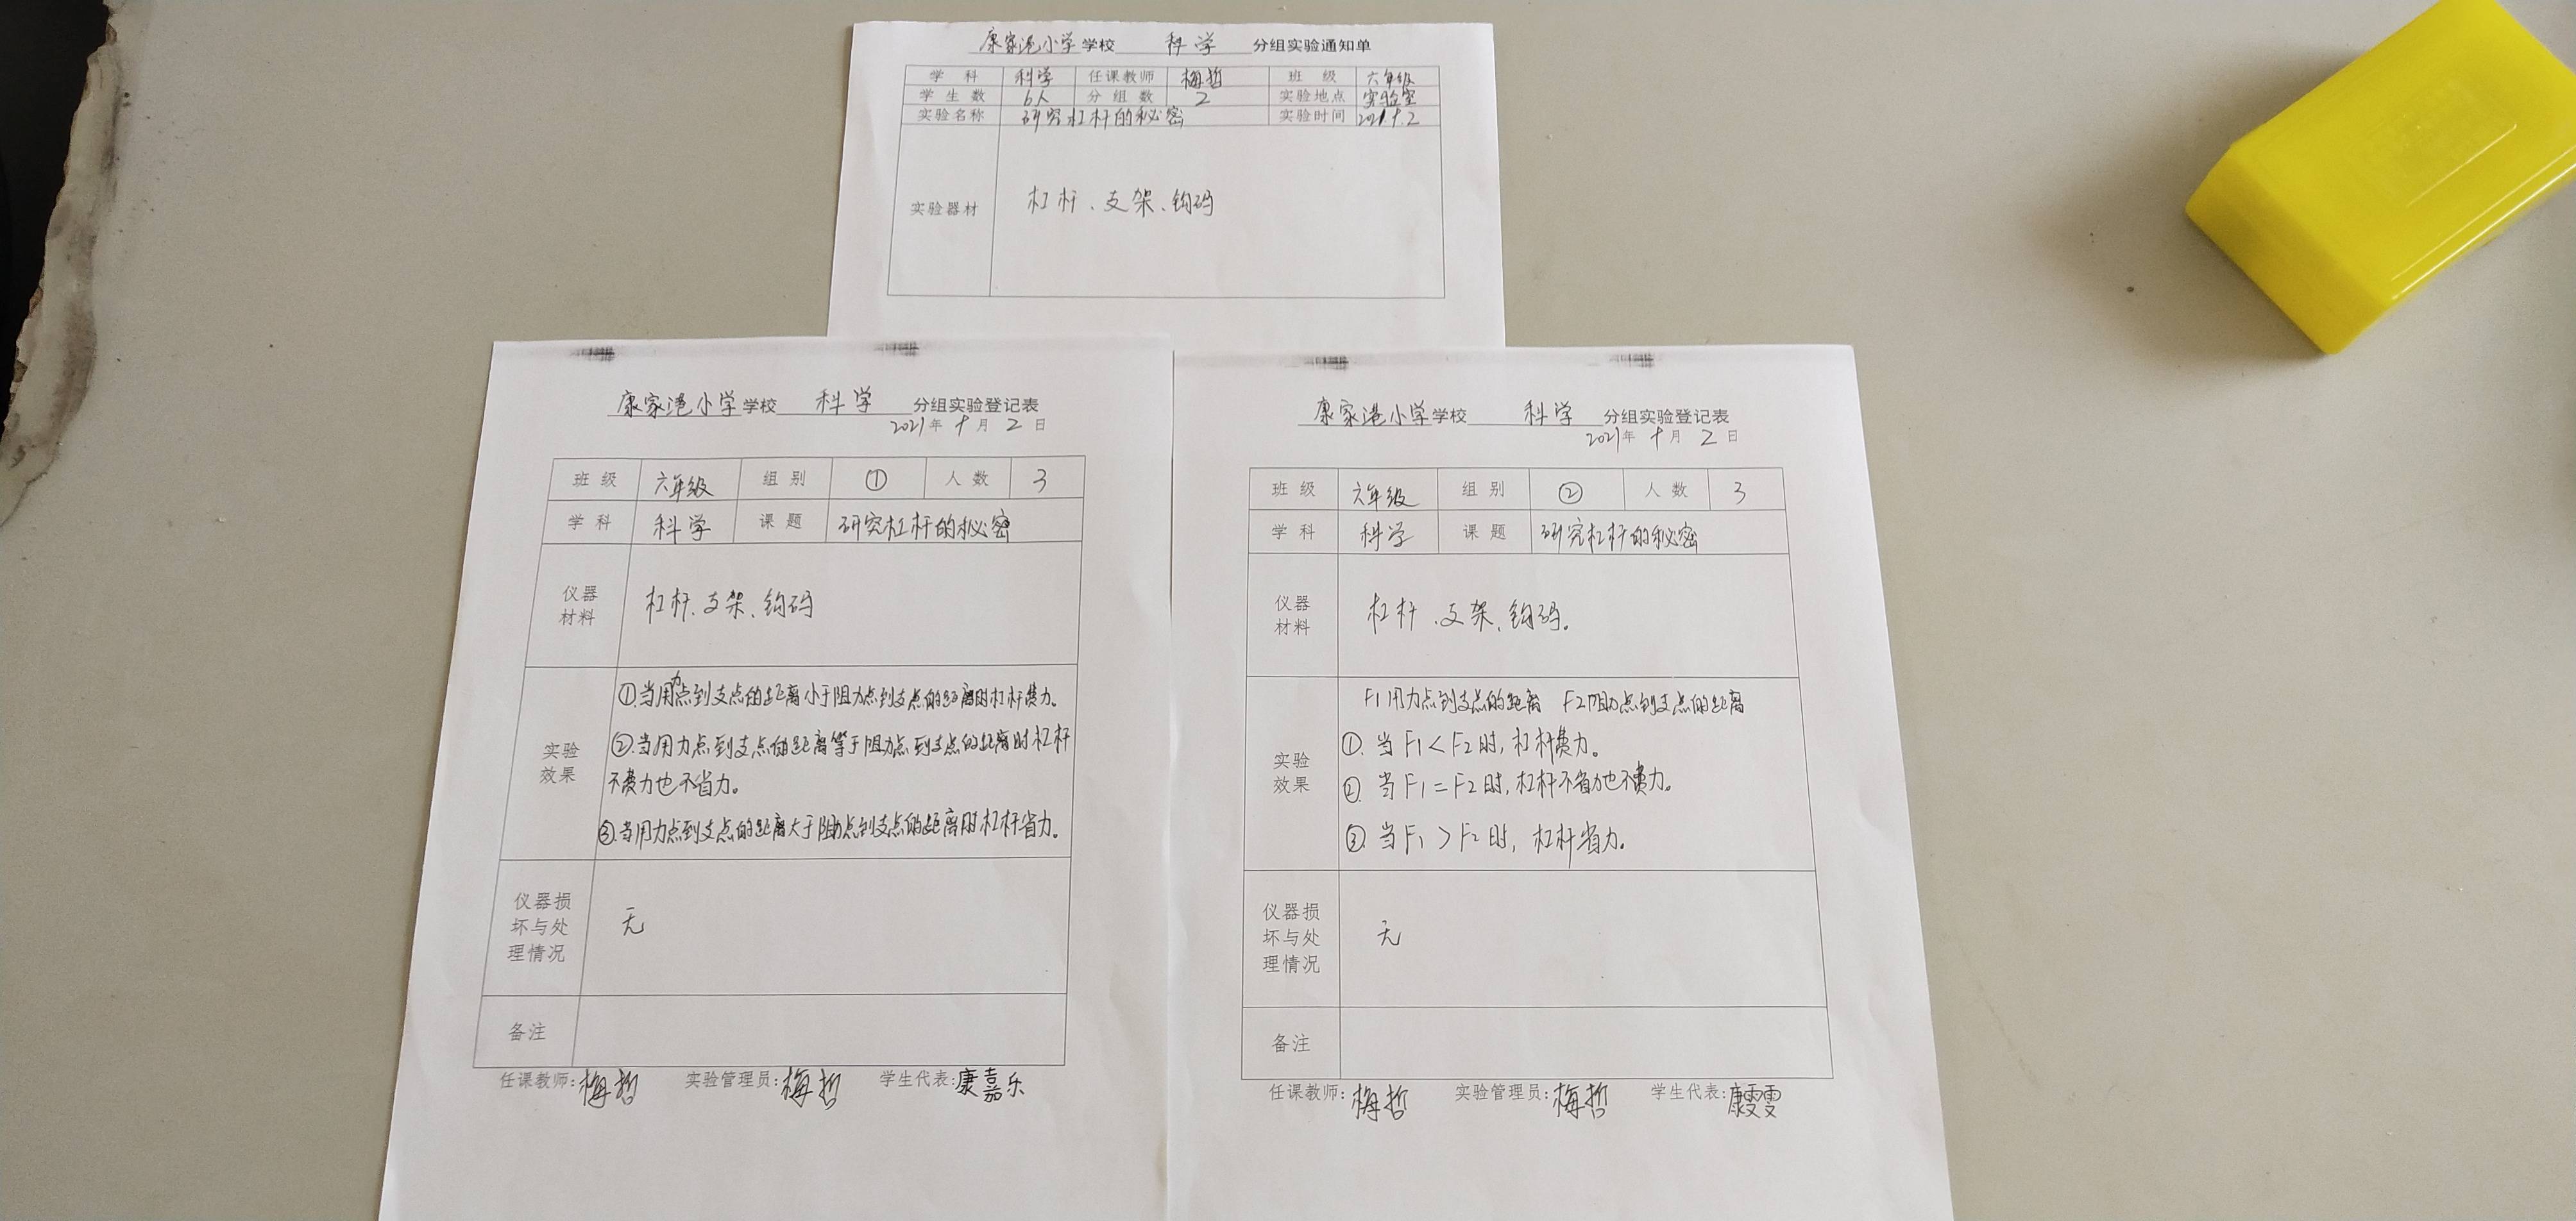 康家港小学学校 科学 分组实验通知单
学科 科学 任课教师 梅哲 班级 六年级
学生数 6人 分组数 2 实验地点 实验室
实验名称 研究杠杆的秘密 实验时间 2021.9.2
实验器材 杠杆、支架、钩码
康家港小学学校 科学 分组实验登记表
2021年 9月 2日
班级 六年级 组别 ① 人数 3
学科 科学 课题 研究杠杆的秘密
仪器
材料
杠杆、支架、钩码
实验
效果
①.当用力点到支点的距离小于阻力点到支点的距离时杠杆费力。
②.当用力点到支点的距离等于阻力点到支点的距离时杠杆
不费力也不省力。
③.当用力点到支点的距离大于阻力点到支点的距离时杠杆省力。
仪器损
坏与处
理情况
无
备注
任课教师:梅哲 实验管理员:梅哲 学生代表:康嘉乐
康家港小学学校 科学 分组实验登记表
2021年 9月 2日
班级 六年级 组别 ② 人数 3
学科 科学 课题 研究杠杆的秘密
仪器
材料
杠杆、支架、钩码。
实验
效果
F1用力点到支点的距离 F2阻力点到支点的距离
①. 当F1<F2时,杠杆费力。
②. 当F1=F2时,杠杆不省力也不费力。
③. 当F1>F2时,杠杆省力。
仪器损
坏与处
理情况
无
备注
任课教师:梅哲 实验管理员:梅哲 学生代表:康雯雯